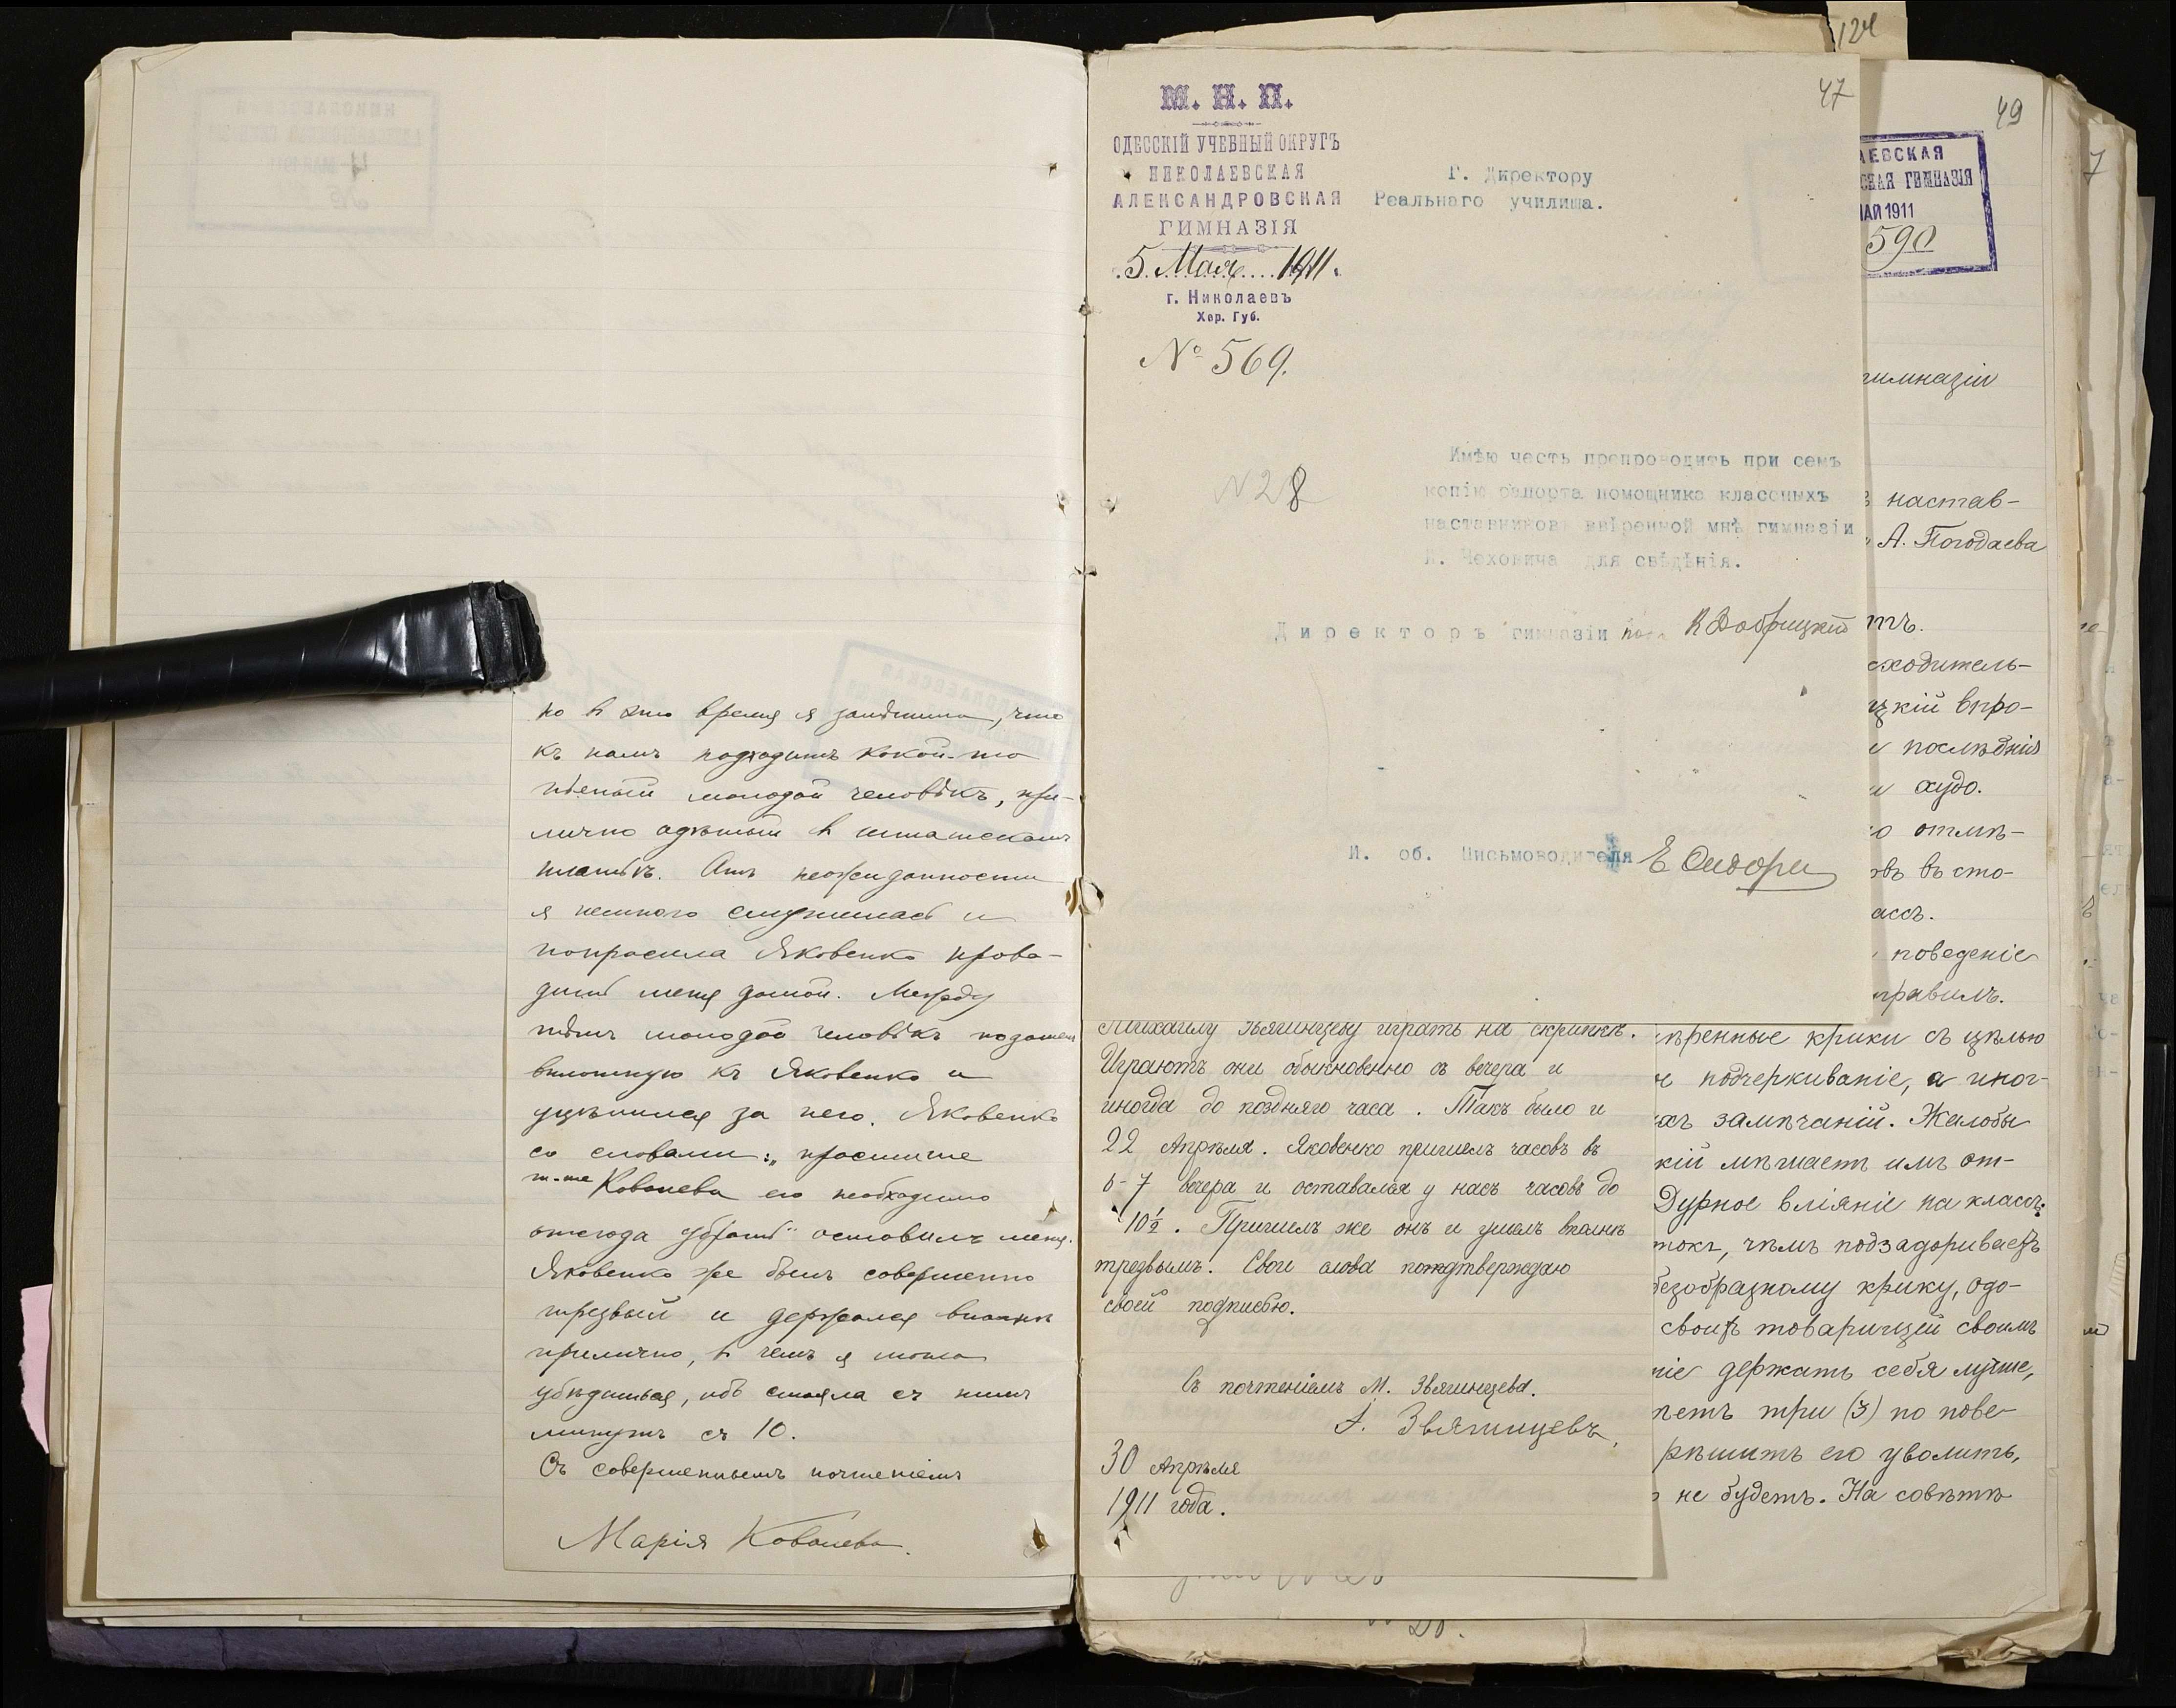 но въ это время я замѣтила, что
къ намъ подходитъ какой-то
пьяный молодой человѣкъ, при-
лично одѣтый въ штатскомъ
платьѣ. Отъ неожиданности
я немного смутилась и
попросила Яковенко прово-
дить меня домой. Между
тѣмъ молодой человѣкъ подошелъ
вплотную къ Яковенко и
уцѣпился за него. Яковенко
со словами: „простите
m-lle Ковалева его необходимо
отсюда убрать" оставилъ меня.
Яковенко же былъ совершенно
трезвый и держался вполнѣ
прилично, въ чемъ я могла
убѣдиться, ибо стояла съ нимъ
минутъ съ 10.
Съ совершеннымъ почтеніемъ
Марія Ковалева.
124
47
М. Н. П.
ОДЕССКІЙ УЧЕБНЫЙ ОКРУГЪ
НИКОЛАЕВСКАЯ
АЛЕКСАНДРОВСКАЯ
ГИМНАЗІЯ
5 Мая 1911 г.
г. Николаевъ
Хер. Губ.
№ 569.
Г. Директору
Реальнаго училища.
N 28
Имѣю честь препроводить при семъ
копію рапорта помощника классныхъ
наставниковъ ввѣренной мнѣ гимназіи
Чеховича для свѣдѣнія.
Директоръ гимназіи К Добрицкій
И. об. Письмоводителя
Михаилу Звягинцеву играть на скрипкѣ.
Играютъ они обыкновенно съ вечера и
иногда до поздняго часа. Такъ было и
22 Апрѣля. Яковенко пришелъ часовъ въ
6-7 вечера и оставался у насъ часовъ до
10½. Пришелъ же онъ и ушелъ вполнѣ
трезвымъ. Свои слова подтверждаю
своей подписью.
Съ почтеніемъ М. Звягинцева.
А. Звягинцевъ.
30 Апрѣля
1911 года.
49
АЕВСКАЯ
СКАЯ ГИМНАЗІЯ
МАЙ 1911
590
гимназіи
настав-
А. Погодаева
тъ.
сходитель-
цкій впро-
и послѣдніи
и худо.
о отмѣ-
овъ въ сто-
ассъ.
поведеніе
правилъ.
ѣренные крики съ цѣлью
е подчеркиваніе, а иног-
ахъ замѣчаній. Жалобы
кій мѣшаетъ имъ от-
Дурное вліяніе на классъ
токъ, чѣмъ подзадориваетъ
безобразному крику, одо-
своихъ товарищей своимъ
ніе держать себя лучше,
летъ три (3) по пове-
рѣшитъ его уволить,
не будетъ. На совѣтѣ
7